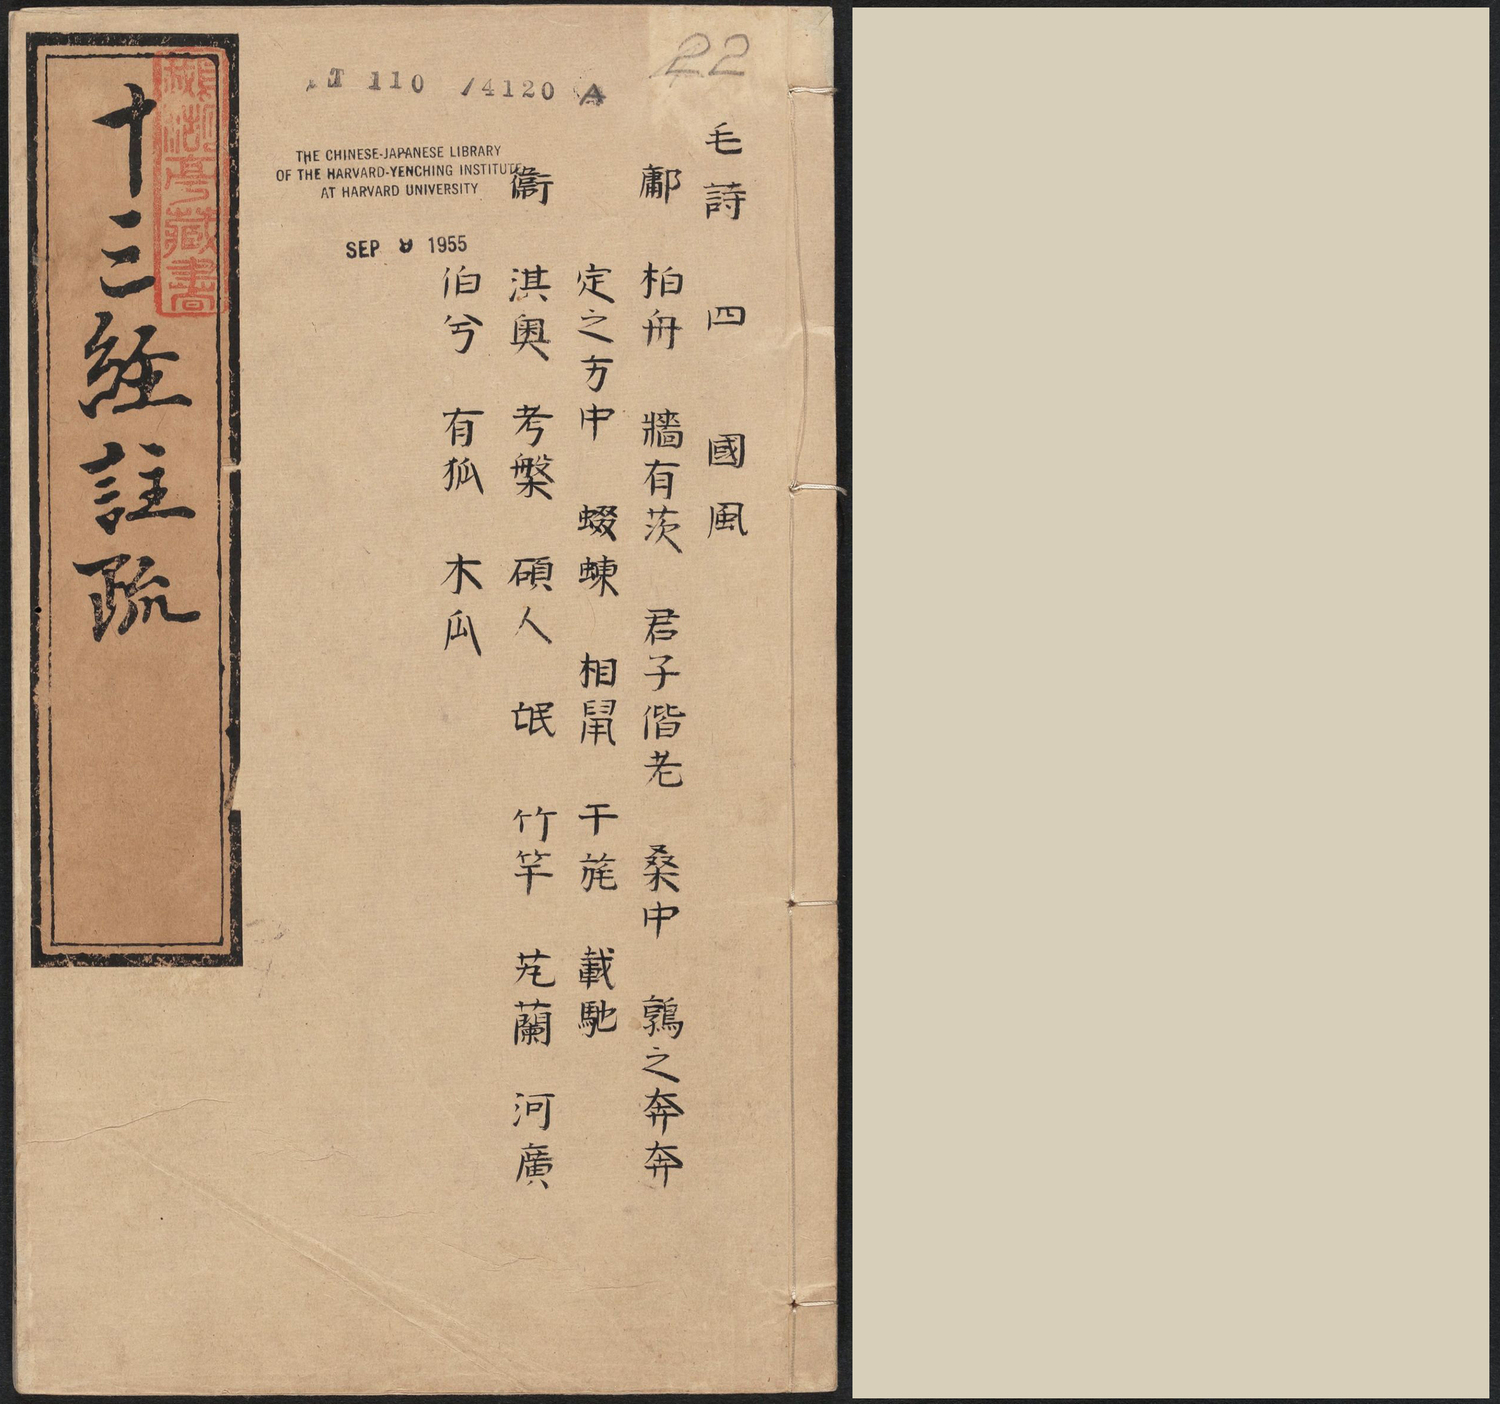 22
毛詩 四 國風
鄘 柏舟 牆有茨 君子偕老 桑中 鶉之奔奔
定之方中 蝃蝀 相鼠 干旄 載馳
衞 淇奥 考槃 碩人 氓 竹竿 芄蘭 河廣
伯兮 有狐 木瓜
T 110 /4120 A
THE CHINESE-JAPANESE LIBRARY
OF THE HARVARD-YENCHING INSTITUTE
AT HARVARD UNIVERSITY
SEP 9 1955
十三經註疏
湖亭藏書